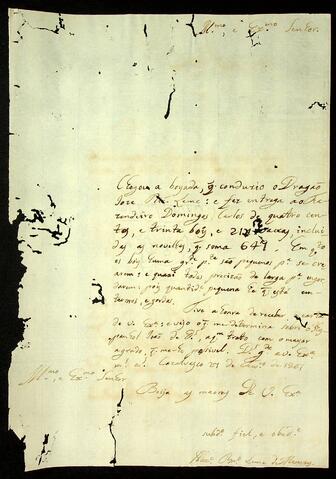 Ill.mo, e Ex.mo Senhor.
Chegou a boyada, q̃ conduzio o Dragão
Joze Leme: e fez entrega ao Re-
rendeiro Domingos Carlos de quatro cen-
tos, e trinta boys, e 211 vaccas, inclui
das as novilhas, q̃ soma 641. Em q.to
os boys huma g.de p.te são pequenos p.a se cre
arem: e quasi todos precizão de larga p.a engor
darem, pois quantid.e pequena he q̃ está em
termos, e gordos.
Tive a honra de receber
de V. Ex.a: e vejo q̃ me determina
João de a q.m trato com o mayor
agrado, q̃ me he possivel. D.s g.de a V. Ex.a
m.s a.s Cazalvasco 21 de de 1801
Ill.mo, e Ex.mo Senhor
Beija as maons De V. Ex.a
subd.o fiel, e obed.e
Leme de